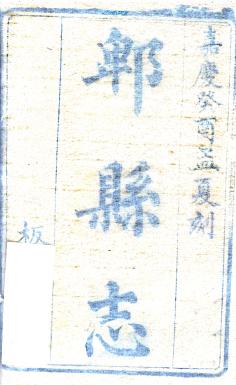 嘉慶癸酉孟夏刻
郫縣志
板